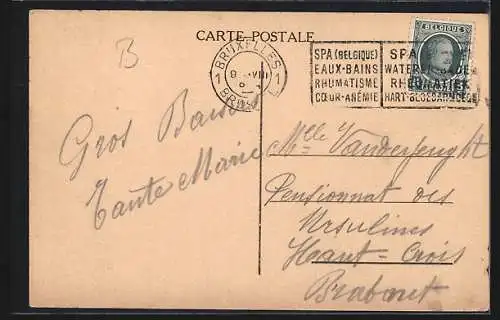 B
CARTE POSTALE
BRUXELLES
1 1
9 VIII
BRUSSEL
SPA (BELGIQUE)
EAUX-BAINS
RHUMATISME
CŒUR-ANÉMIE
SPA
WATEREN-BADEN
RHUMATIEK
HART-BLOEDARMOEDE
BELGIQUE
Gros Baisers
Tante Marie
Mlle Vanderfenght
Pensionnat des
Ursulines
Haut-Crois
Brabant